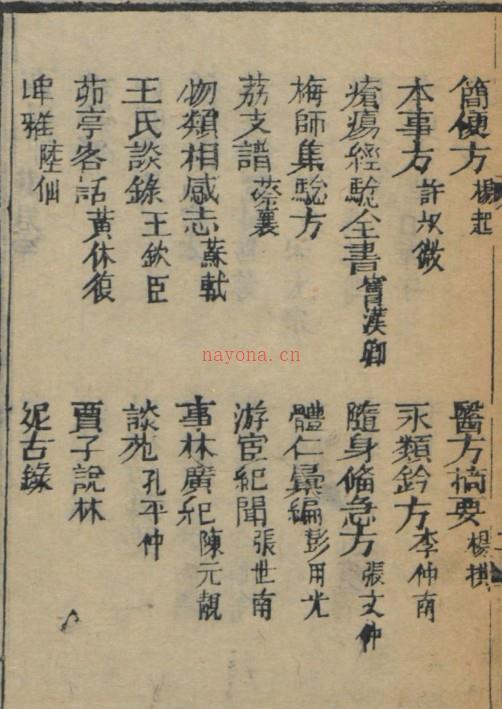 簡便方 楊起 醫方摘要 楊拱
本事方 許叔微 永類鈐方 李仲南
瘡瘍經驗全書 竇漢卿 隨身備急方 張文仲
梅師集驗方 體仁彙編 彭用光
荔支譜 蔡襄 游宦紀聞 張世南
物類相感志 蘇軾 事林廣紀 陳元靚
王氏談錄 王欽臣 談苑 孔平仲
茆亭客話 黃休復 賈子說林
埤雅 陸佃 妮古錄
nayona.cn